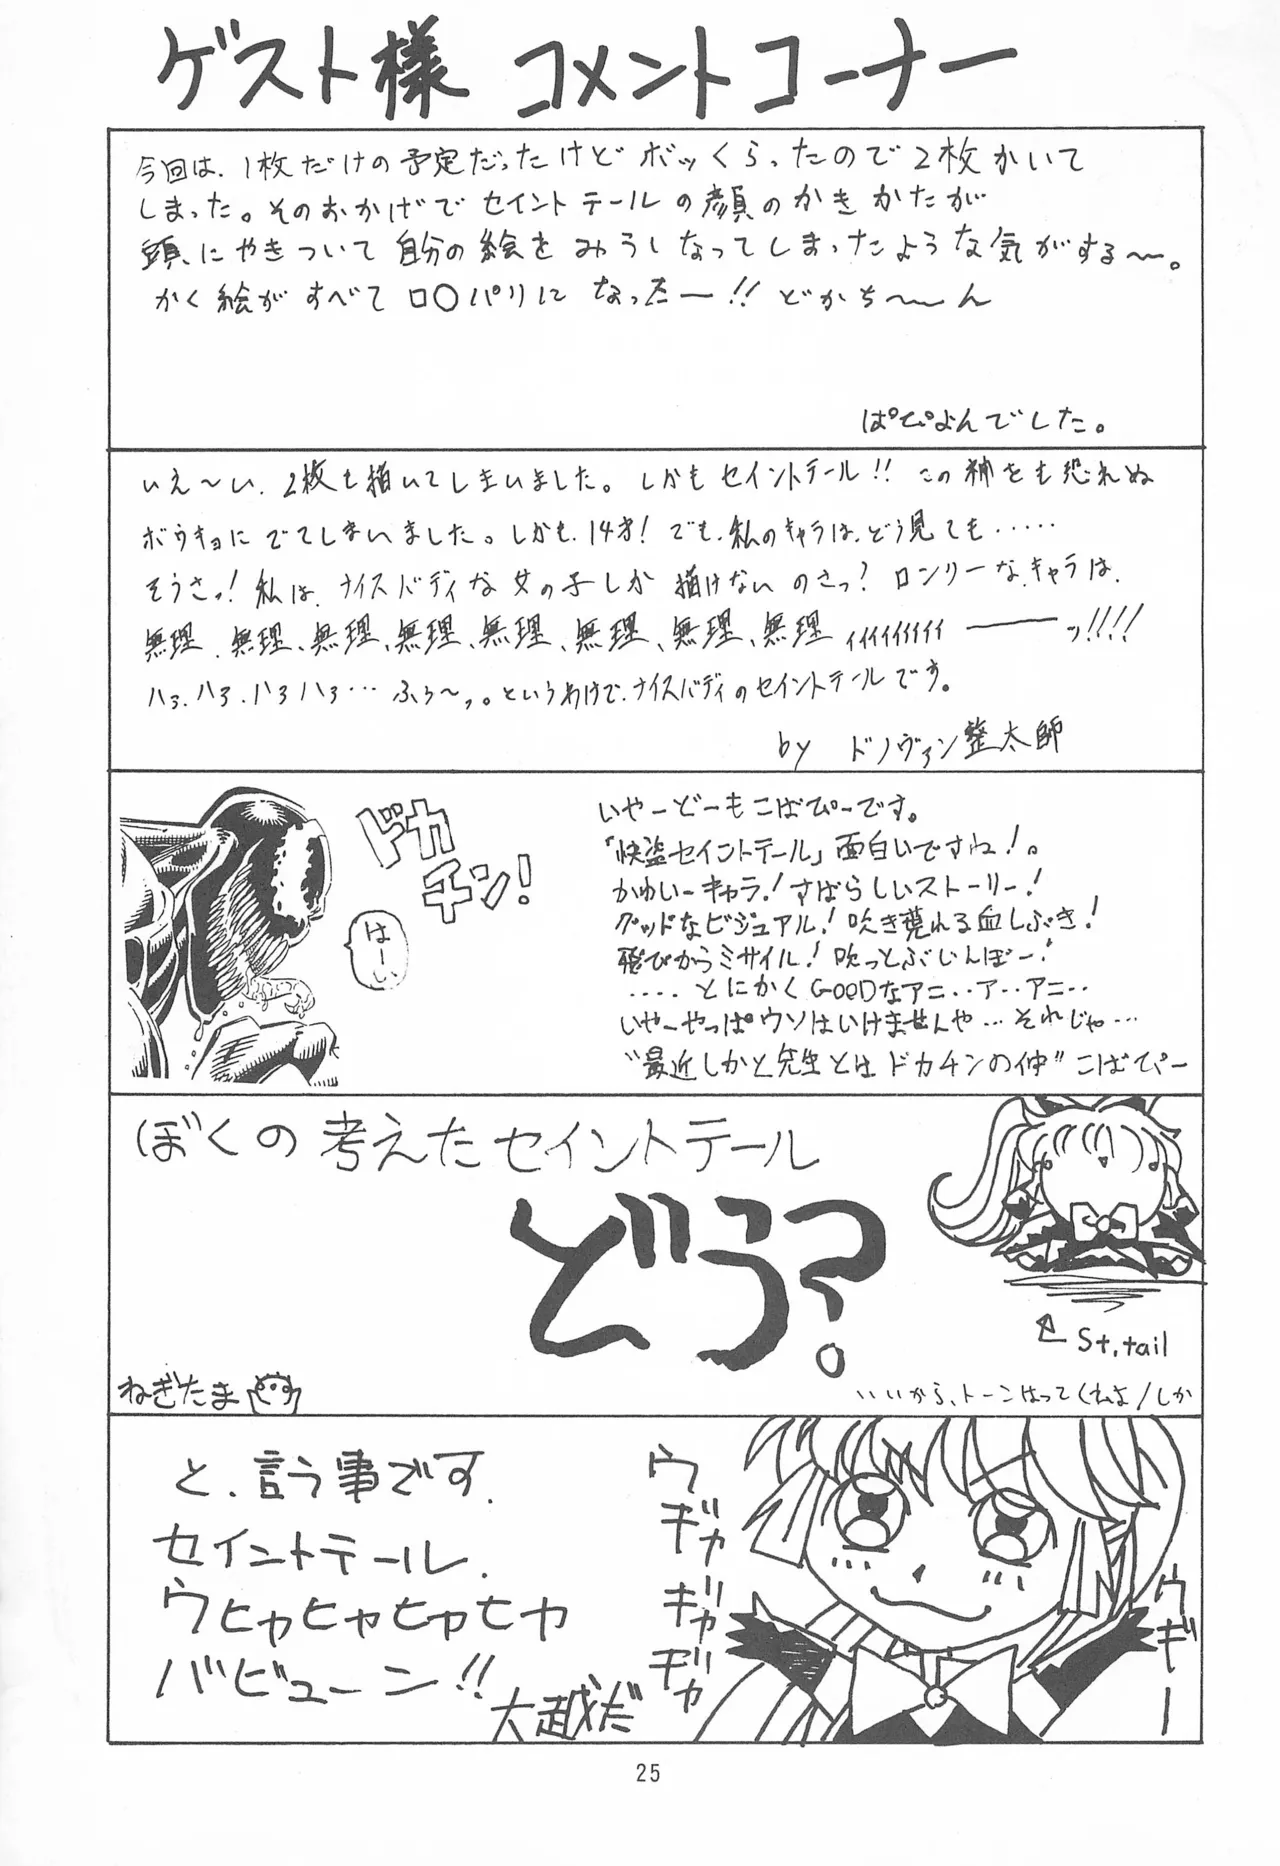 ゲスト様 コメントコーナー
今回は、1枚だけの予定だったけど ボッくらったので2枚かいて
しまった。そのおかげで セイントテールの顔のかきかたが
頭にやきついて 自分の絵をみうしなってしまったような気がする〜〜。
かく絵がすべて ロ〇パリになったー!! どかち〜〜ん
ぱぴよんでした。
いえ〜い、2枚も描いてしまいました。しかもセイントテール!! この神をも恐れぬ
ボウキョにでてしまいました。しかも、14才! でも、私のキャラは、どう見ても……
そうさっ! 私は、ナイスバディな女の子しか描けないのさっ? ロンリーな、キャラは、
無理、無理、無理、無理、無理、無理、無理、無理ィィィィィィィィ ――ッ!!!!
ハァ、ハァ、ハァハァ… ふぅ〜っ。というわけで、ナイスバディのセイントテールです。
by ドノヴァン整太師
ドカ
チン!
はーい
いやーどーもこばぴーです。
「快盗セイントテール」面白いですね!。
かわいーキャラ! すばらしいストーリー!
グッドなビジュアル! 吹き荒れる血しぶき!
飛びからミサイル! 吹っとぶじんぼー!
....とにかくGOODなアニ‥ア‥アニ‥
いやーやっぱウソはいけませんや…それじゃ…
"最近しかと先生とはドカチンの仲"こばぴー
ぼくの考えたセイントテール
どう?
St.tail
ねぎたま
いいから、トーンはってくれよ/しか
と、言う事です。
セイントテール、
ウヒャヒャヒャヒャ
バビューン!!
大越だ
ウギャギャギャ
ウギー
25